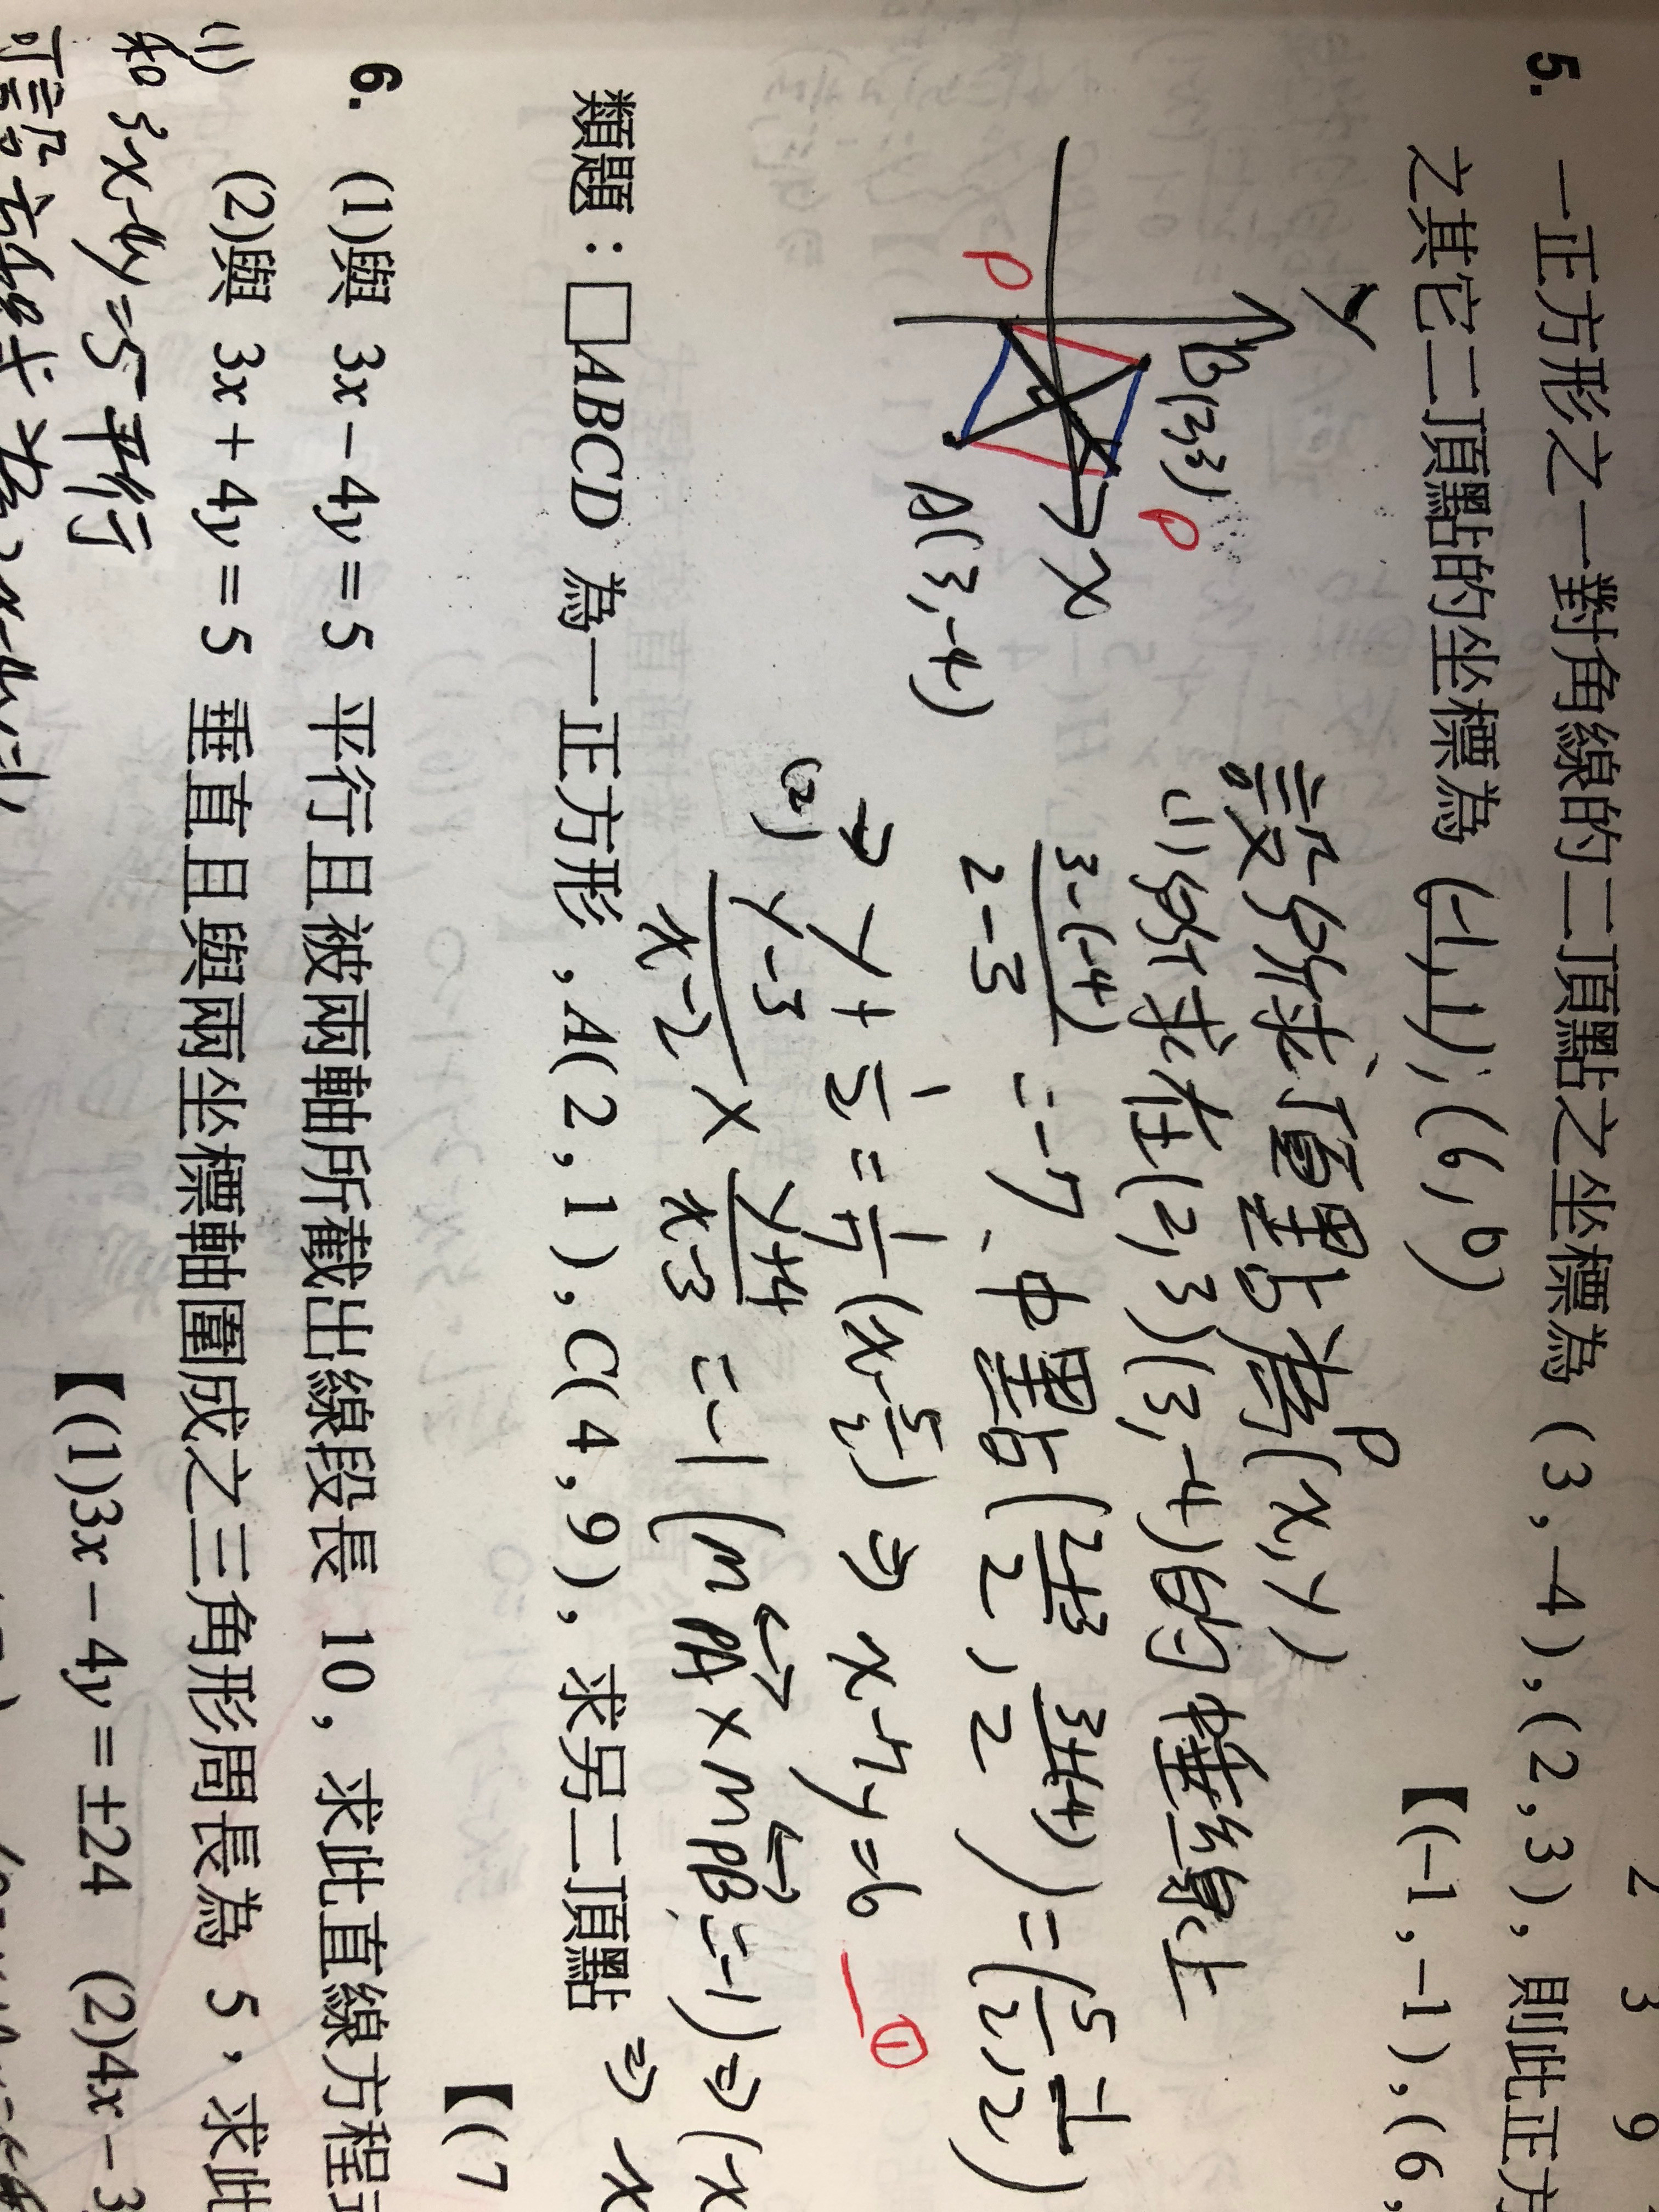 2 3 9
5. 一正方形之一對角線的二頂點之坐標為 (3,-4),(2,3),則此正方
之其它二頂點的坐標為 (-1,-1),(6,0) 【(-1,-1),(6,
y
B(2,3) P
x
P
A(3,-4)
設所求頂點為P(x,y)
(1)所求在(2,3)(3,-4)的中垂線上
3-(-4)/2-3 = -7、中點(2+3/2, 3+(-4)/2) = (5/2, -1/2)
⇒ y + 1/2 = 1/7 (x - 5/2) ⇒ x-7y=6 —①
(2) y-3/x-2 × y+4/x-3 = -1 (mPA × mPB = -1) ⇒ (x
⇒ x
類題:□ABCD 為一正方形,A(2,1),C(4,9),求另二頂點
【(7
6. (1)與 3x-4y=5 平行且被兩軸所截出線段長 10,求此直線方程
(2)與 3x+4y=5 垂直且與兩坐標軸圍成之三角形周長為 5,求此
【(1)3x-4y=±24 (2)4x-3
(1)
和 3x-4y=5 平行
可設